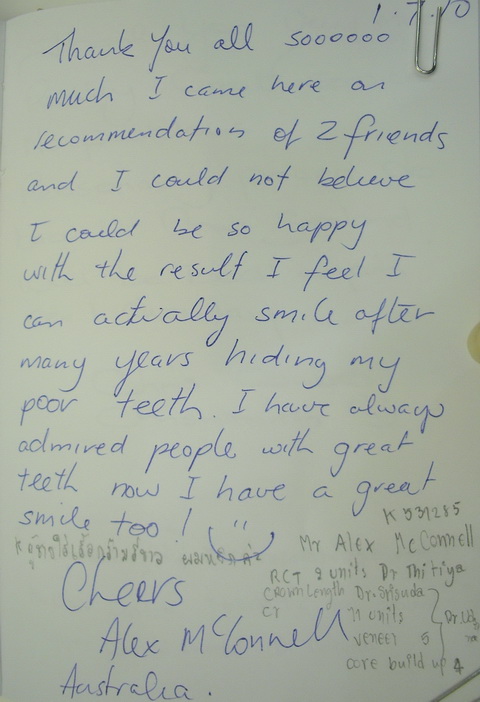 1.7.10
Thank you all soooooo
much I came here on
recommendation of 2 friends
and I could not believe
I could be so happy
with the result I feel I
can actually smile after
many years hiding my
poor teeth. I have always
admired people with great
teeth now I have a great
smile too!
K 531285
Mr Alex McConnell
RCT 2 units Dr Thitiya
Crown Length Dr. Srisuda
Cr 11 units
veneer 5
core build up 4
Dr.
Cheers
Alex McConnell
Australia.